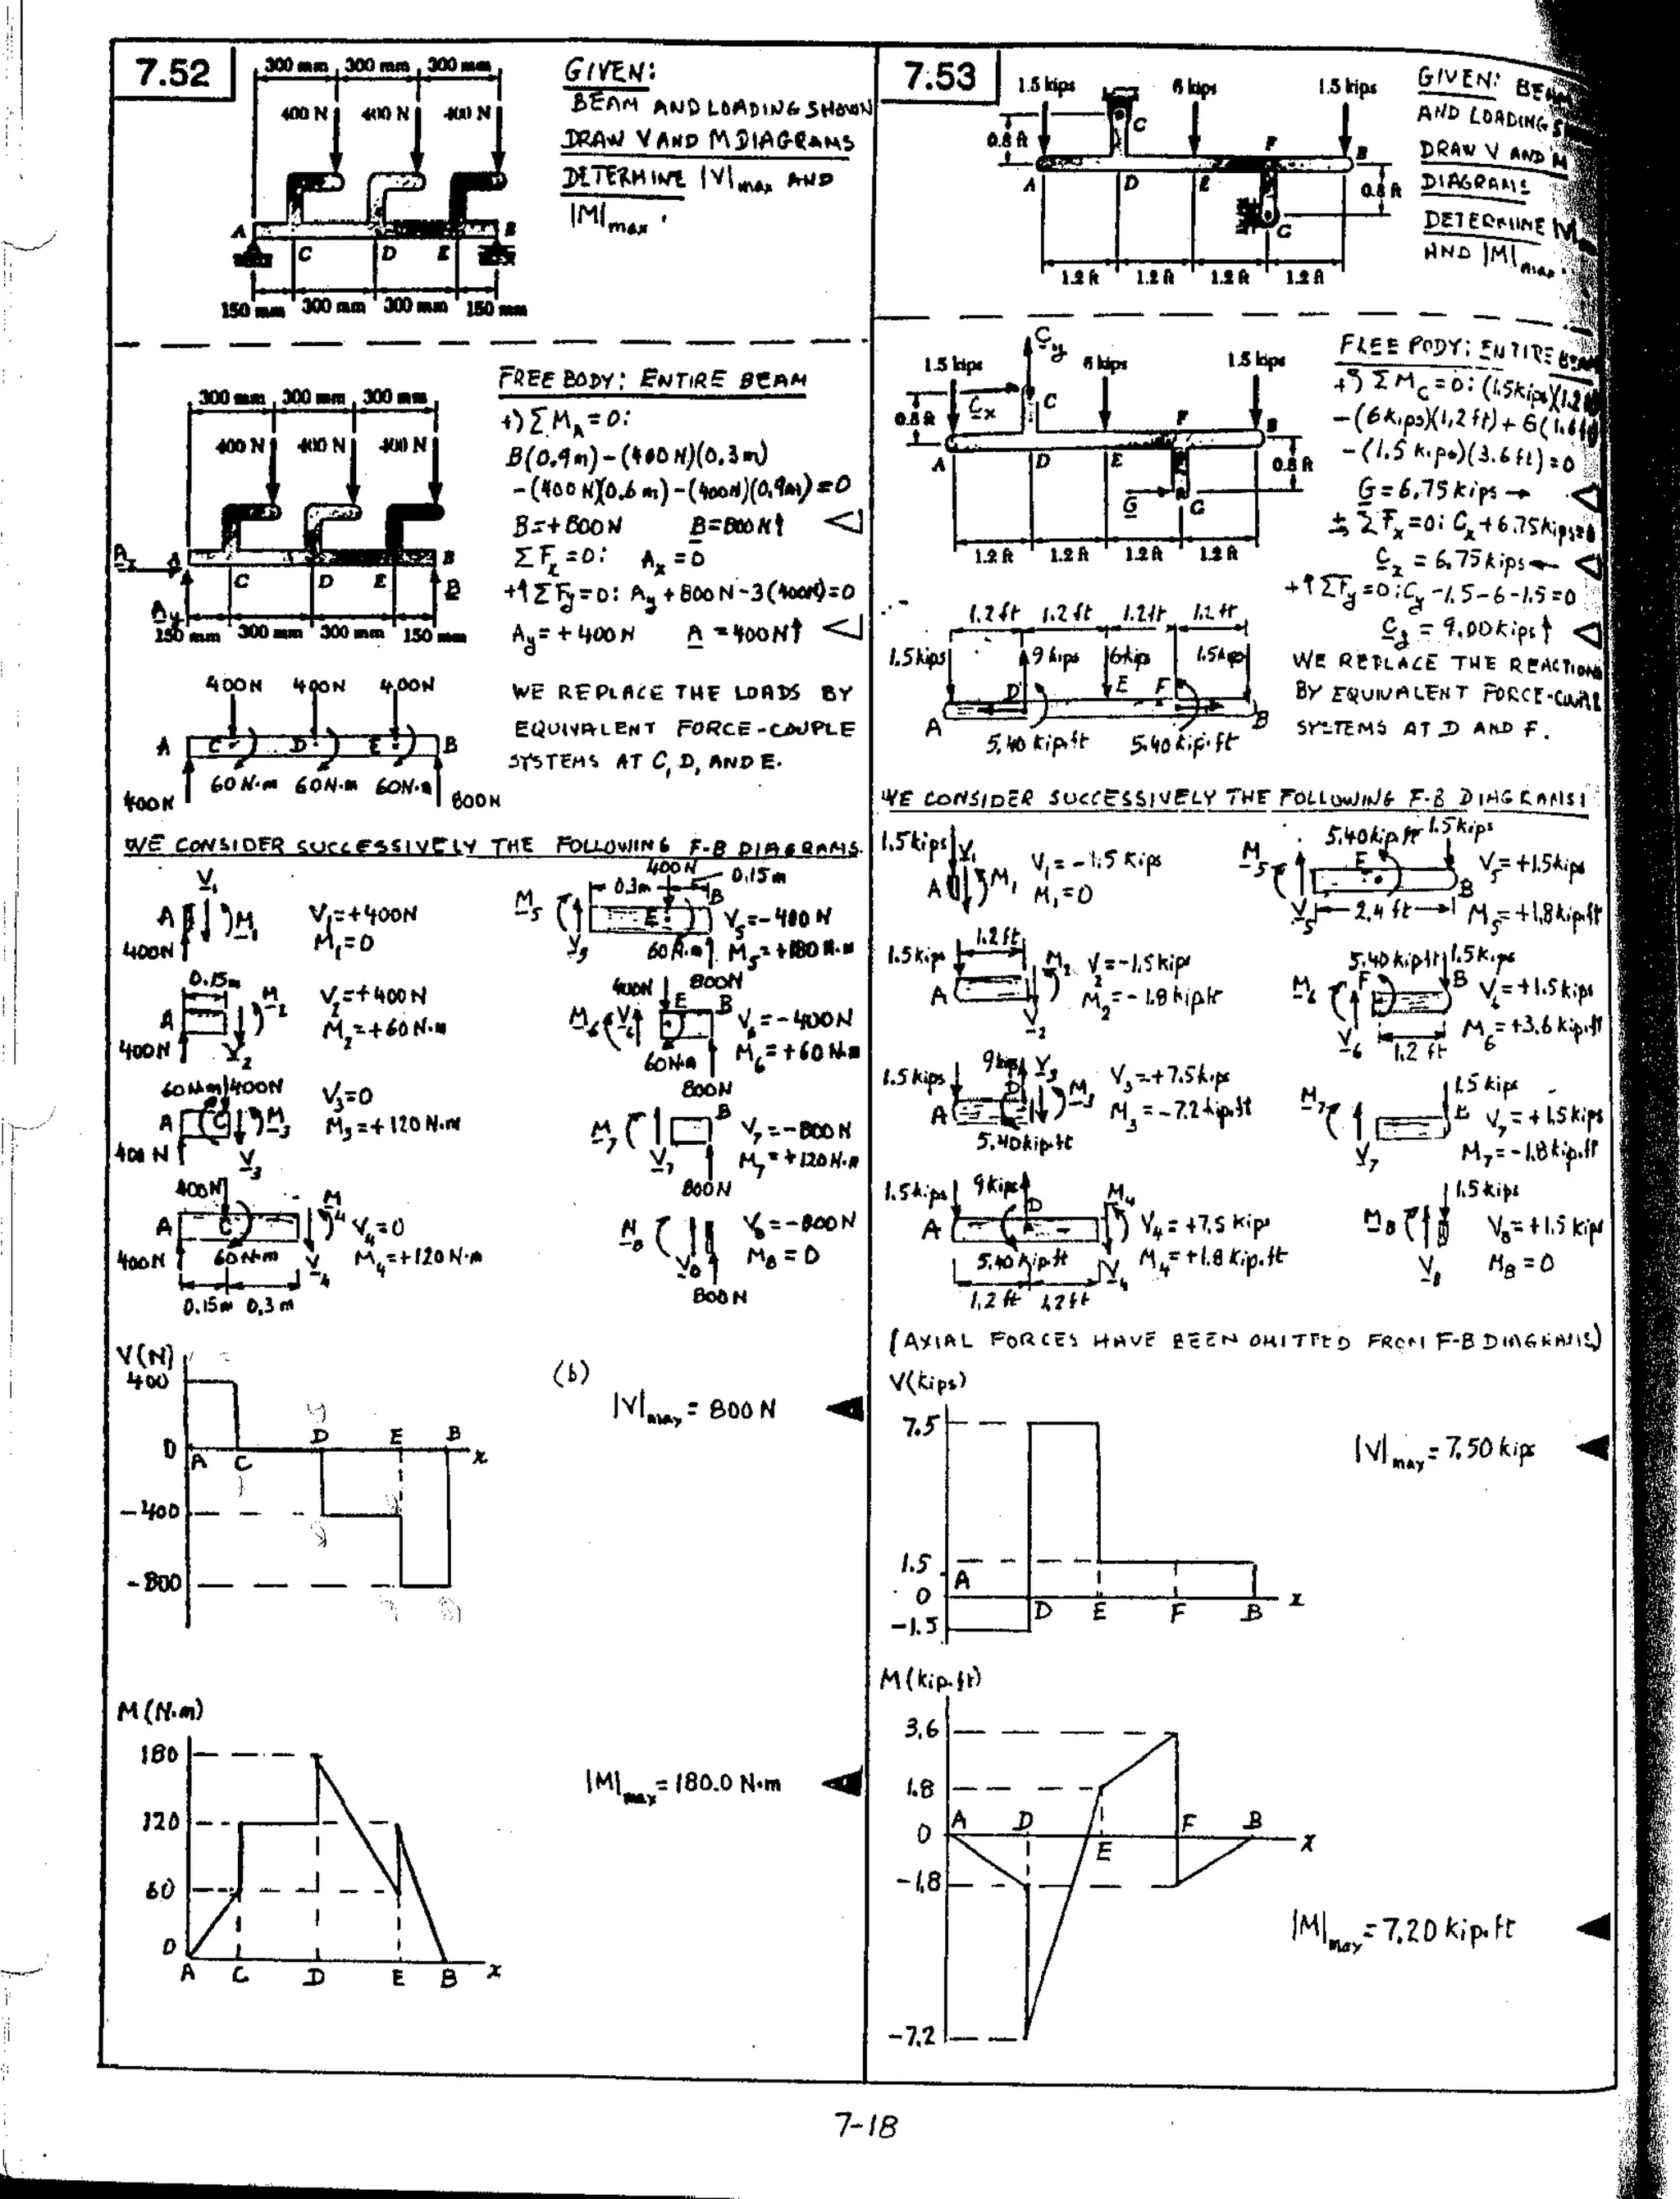 7.52
300 mm 300 mm 300 mm
400 N 400 N 400 N
A C D E B
150 mm 300 mm 300 mm 150 mm
GIVEN:
BEAM AND LOADING SHOWN
DRAW V AND M DIAGRAMS
DETERMINE |V|max AND
|M|max.
300 mm 300 mm 300 mm
400 N 400 N 400 N
Ax A C D E B
Ay B
150 mm 300 mm 300 mm 150 mm
FREE BODY: ENTIRE BEAM
+) ΣMA = 0:
B(0.9m) - (400 N)(0.3 m)
-(400 N)(0.6 m) - (400N)(0.9m) = 0
B = +800N B = 800 N↑
ΣFx = 0: Ax = 0
+↑ ΣFy = 0: Ay + 800N - 3(400N) = 0
Ay = +400 N A = 400N↑
400N 400N 400N
A C D E B
60 N·m 60N·m 60N·m
400N 800N
WE REPLACE THE LOADS BY
EQUIVALENT FORCE-COUPLE
SYSTEMS AT C, D, AND E.
WE CONSIDER SUCCESSIVELY THE FOLLOWING F-B DIAGRAMS.
V1
A M1
400N
V1 = +400N
M1 = 0
0.15m
A M2
400N V2
V2 = +400N
M2 = +60 N·m
60 N·m 400N
A C M3
400 N V3
V3 = 0
M3 = +120 N·m
400N
A C M4
400N 60 N·m V4
V4 = 0
M4 = +120 N·m
0.15m 0.3 m
400N
0.3m 0.15m
M5 E B
V5 60 N·m
V5 = -400 N
M5 = +180 N·m
800N
400N E B
M6 V6
60N·m
V6 = -400N
M6 = +60 N·m
800N
M7 B
V7
V7 = -800N
M7 = +120N·m
800N
M8
V8
V8 = -800N
M8 = 0
800N
V(N)
400
0
A C D E B x
-400
-800
(b)
|V|max = 800 N
M (N·m)
180
120
60
0
A C D E B x
|M|max = 180.0 N·m
7.53
1.5 kips 6 kips 1.5 kips
0.8 ft C
A D E F B
0.8 ft
G
1.2 ft 1.2 ft 1.2 ft 1.2 ft
GIVEN:
AND LOADING
DRAW V AND M
DIAGRAMS
DETERMINE
AND |M|max.
1.5 kips Cy 6 kips 1.5 kips
0.8 ft Cx C
A D E F B
0.8 ft
G G
1.2 ft 1.2 ft 1.2 ft 1.2 ft
FREE BODY: ENTIRE BEAM
+) ΣMC = 0: (1.5kips)(1.2
-(6 kips)(1.2 ft) + G(1.6 ft)
-(1.5 kips)(3.6 ft) = 0
G = 6.75 kips →
ΣFx = 0: Cx + 6.75kips = 0
Cx = 6.75 kips ←
+↑ ΣFy = 0: Cy - 1.5 - 6 - 1.5 = 0
Cy = 9.00 kips ↑
1.2 ft 1.2 ft 1.2 ft 1.2 ft
1.5 kips 9 kips 6 kip 1.5 kip
A D E F B
5.40 kip·ft 5.40 kip·ft
WE REPLACE THE REACTIONS
BY EQUIVALENT FORCE-COUPLE
SYSTEMS AT D AND F.
WE CONSIDER SUCCESSIVELY THE FOLLOWING F-B DIAGRAMS:
1.5 kips V1
A M1
V1 = -1.5 kips
M1 = 0
1.5 kip 1.2 ft
A M2
V2
V2 = -1.5 kips
M2 = -1.8 kip·ft
1.5 kips 9 kips V3
A D M3
5.40 kip·ft
V3 = +7.5 kips
M3 = -7.2 kip·ft
1.5 kips 9 kips
A D M4
5.40 kip·ft V4
V4 = +7.5 kips
M4 = +1.8 kip·ft
1.2 ft 1.2 ft
5.40 kip·ft 1.5 kips
M5 F B
V5 2.4 ft
V5 = +1.5 kips
M5 = +1.8 kip·ft
5.40 kip·ft 1.5 kips
M6 F B
V6 1.2 ft
V6 = +1.5 kips
M6 = +3.6 kip·ft
1.5 kips
M7 B
V7
V7 = +1.5 kips
M7 = -1.8 kip·ft
1.5 kips
M8
V8
V8 = +1.5 kips
M8 = 0
(AXIAL FORCES HAVE BEEN OMITTED FROM F-B DIAGRAMS)
V(kips)
7.5
1.5
0
-1.5
A D E F B x
|V|max = 7.50 kips
M (kip·ft)
3.6
1.8
0
-1.8
-7.2
A D E F B x
|M|max = 7.20 kip·ft
7-18